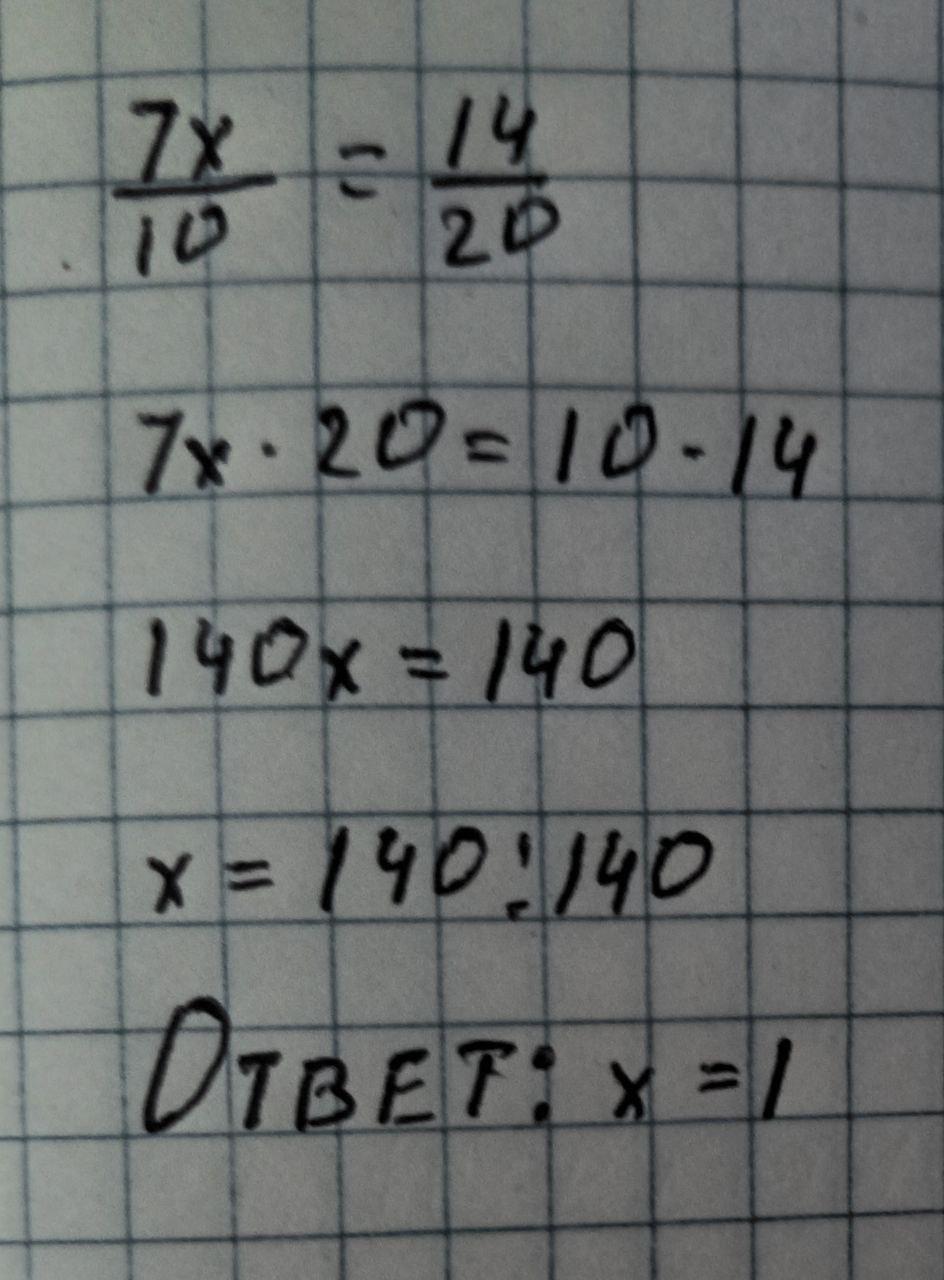 7x/10 = 14/20
7x · 20 = 10 · 14
140x = 140
x = 140 : 140
Ответ: x = 1